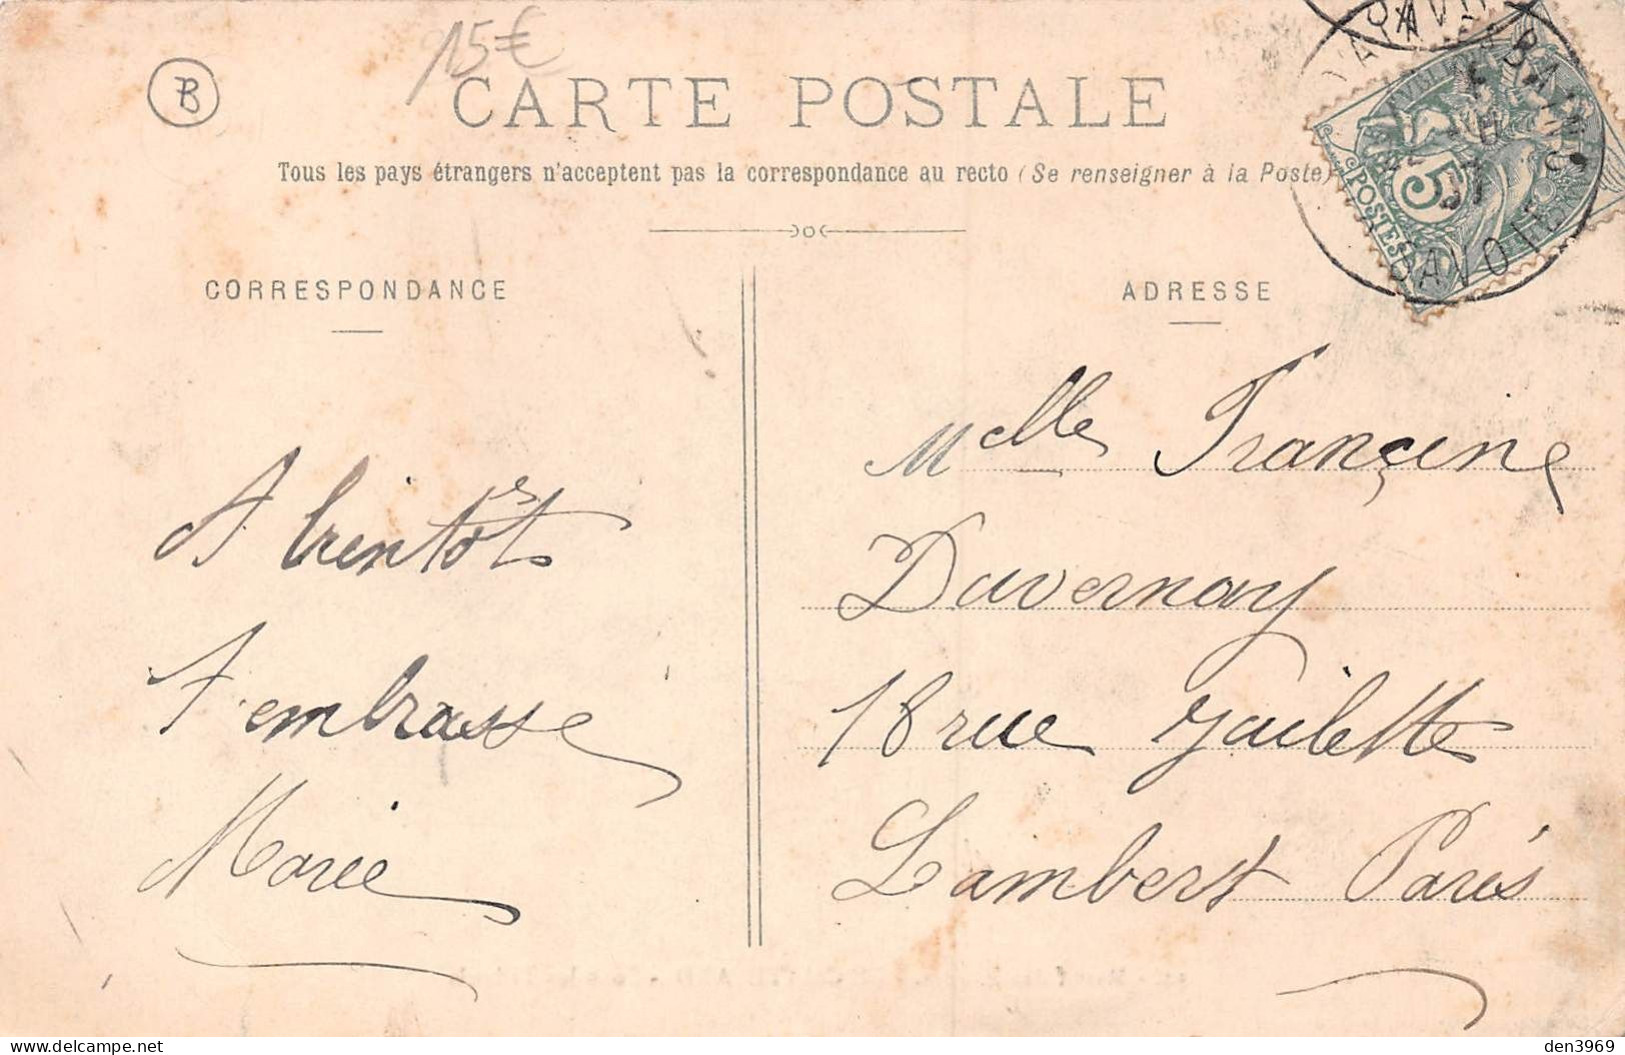 15€
B
CARTE POSTALE
Tous les pays étrangers n'acceptent pas la correspondance au recto (Se renseigner à la Poste)
CORRESPONDANCE
A bientôt
T'embrasse
Marie
ADRESSE
Melle Françine
Duvernay
18 rue Yailette
Lambert Paris
5
POSTES
BAINS
SAVOIE
delcampe.net
den3969